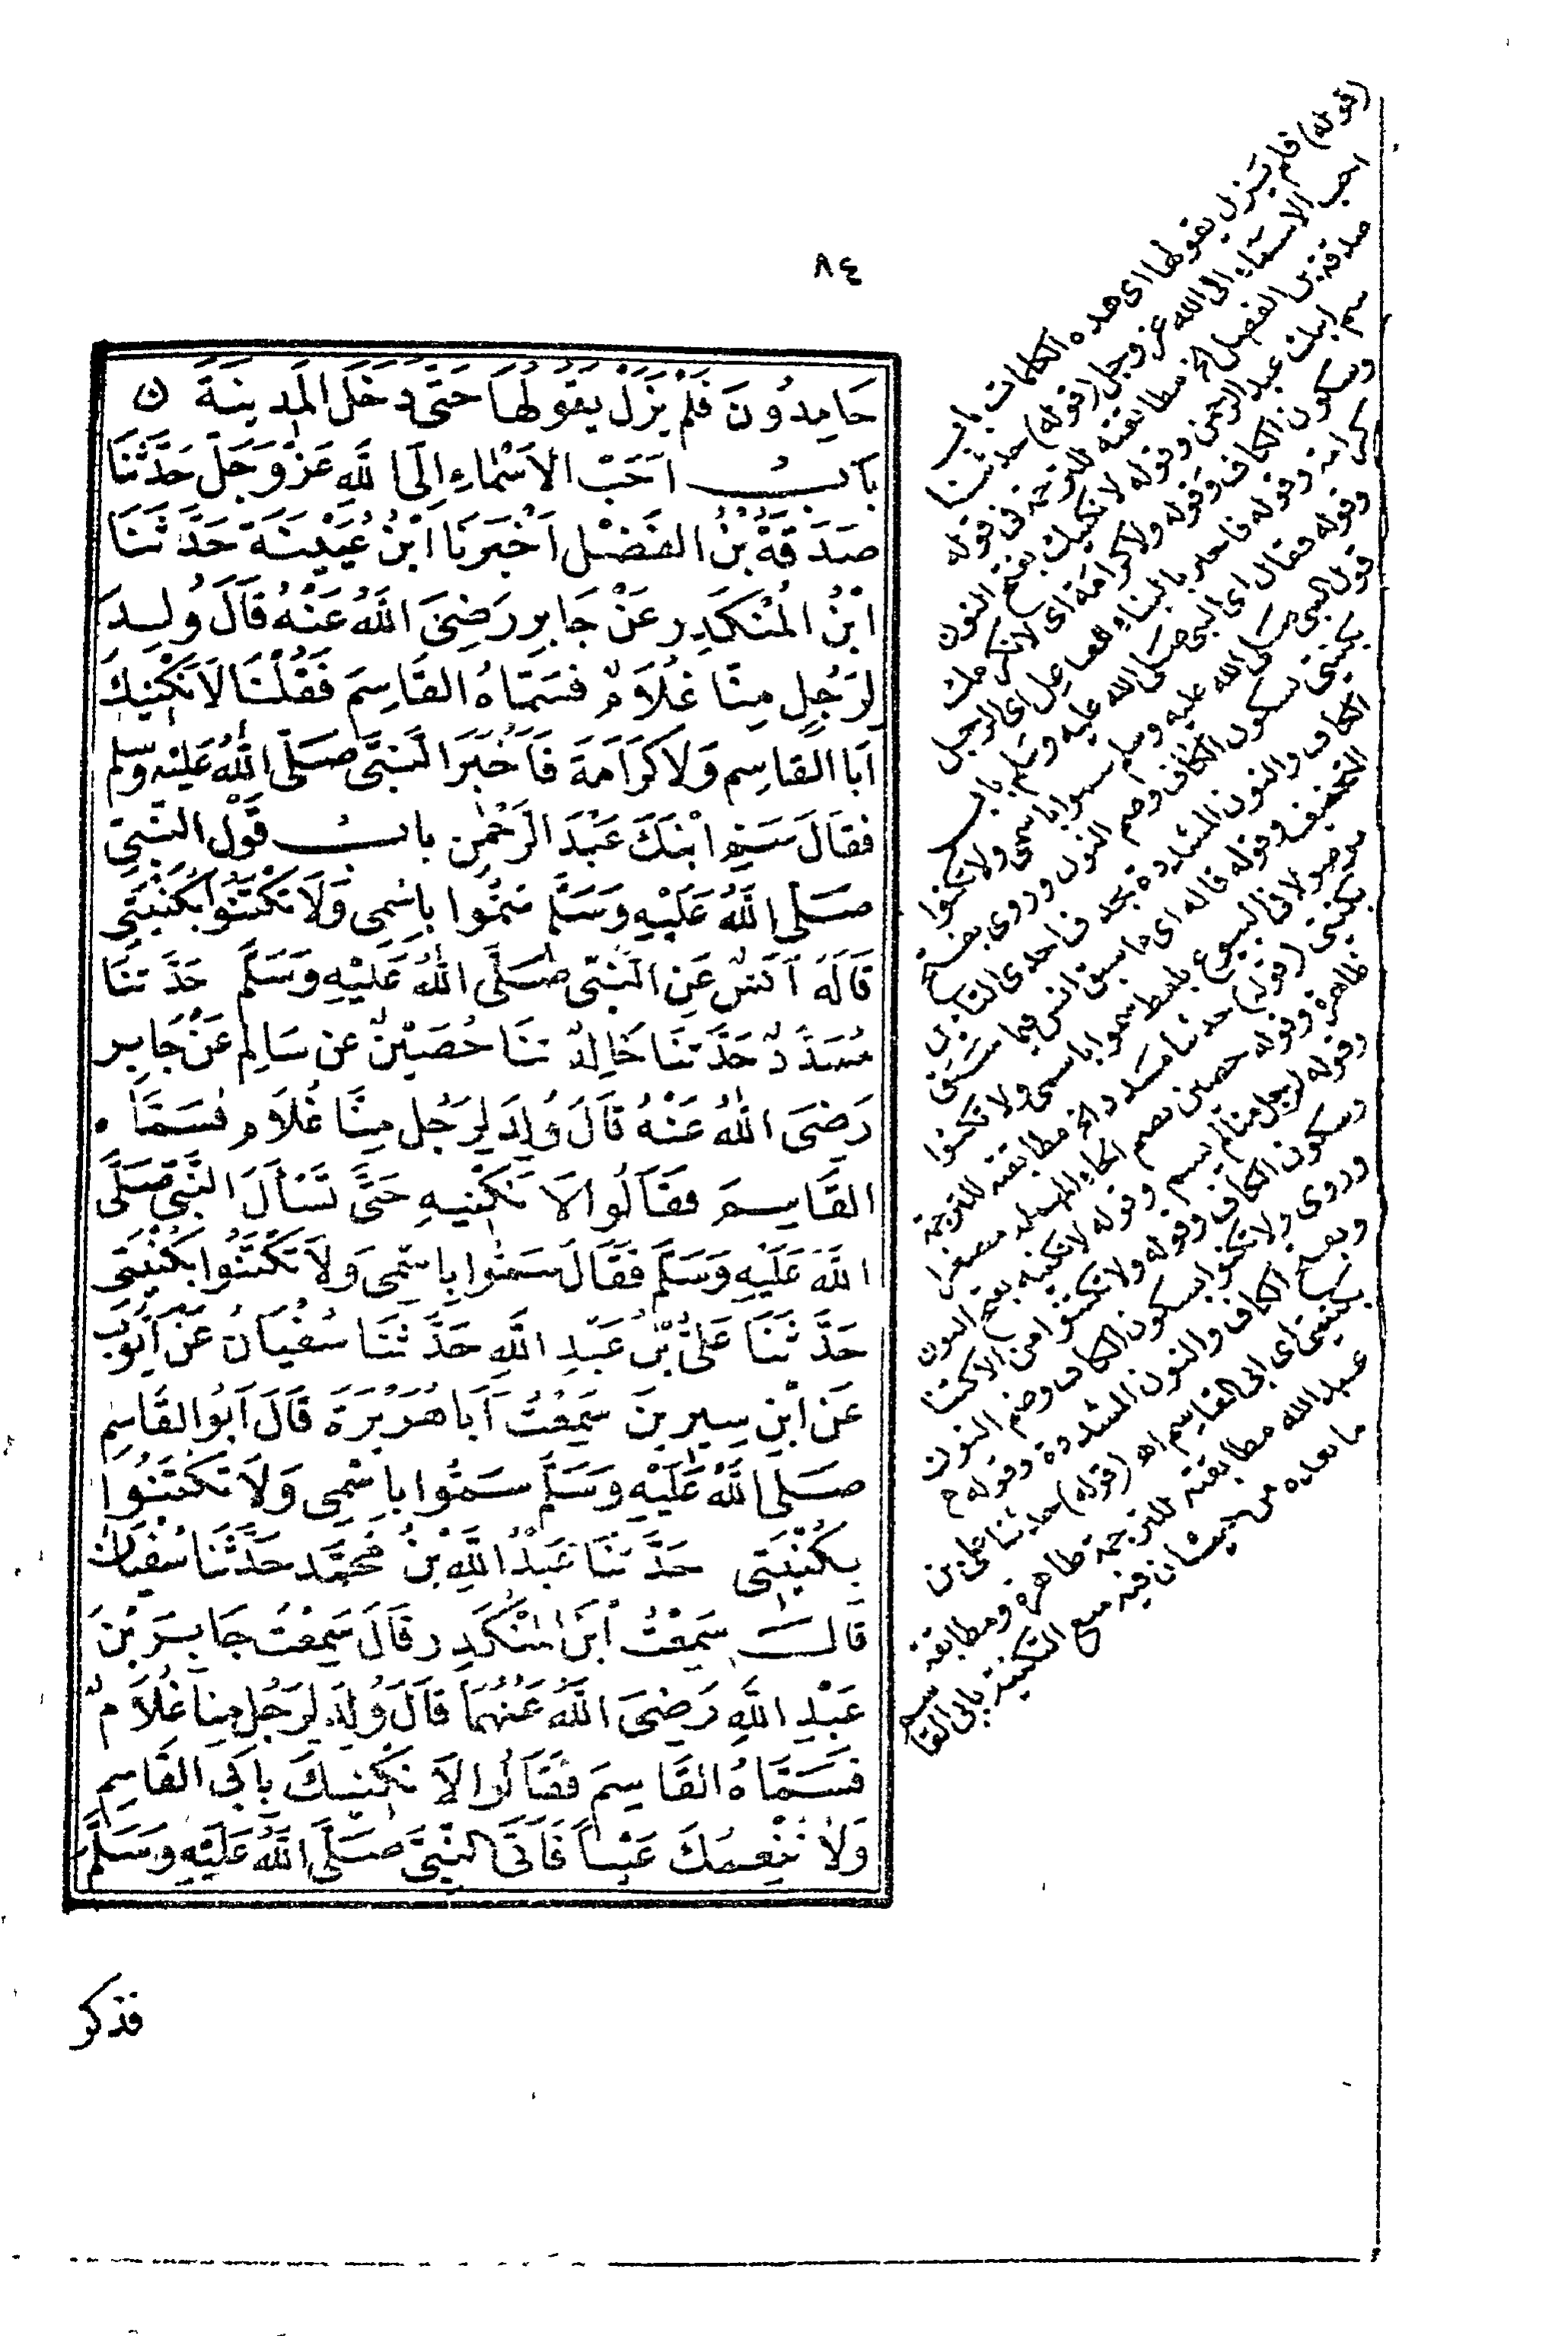 ٨٤
حَامِدُونَ فَلَمْ يَزَلْ يَقُولُهَا حَتَّى دَخَلَ المَدِينَةَ ن
بَابُ اَحَبْ الاَسْمَاءِ اِلَى اللهِ عَزَّ وَجَلَّ حَدَّثَنَا
صَدَقَةُ بْنُ الفَضْلِ اَخْبَرَنَا ابْنُ عُيَيْنَةَ حَدَّثَنَا
ابْنُ المُنْكَدِرِ عَنْ جَابِرٍ رَضِيَ اللهُ عَنْهُ قَالَ وُلِدَ
لِرَجُلٍ مِنَّا غُلَامٌ فَسَمَّاهُ القَاسِمَ فَقُلْنَا لَا نَكْنِيكَ
اَبَا القَاسِمِ وَلَا كَرَامَةَ فَاَخْبَرَ النَّبِيَّ صَلَّى اللهُ عَلَيْهِ وَسَلَّمَ
فَقَالَ سَمِّ ابْنَكَ عَبْدَ الرَّحْمٰنِ بابُ قَوْلِ النَّبِيِّ
صَلَّى اللهُ عَلَيْهِ وَسَلَّمَ سَمُّوا بِاسْمِي وَلَا تَكْتَنُوا بِكُنْيَتِي
قَالَهُ اَنَسٌ عَنِ النَّبِيِّ صَلَّى اللهُ عَلَيْهِ وَسَلَّمَ حَدَّثَنَا
مُسَدَّدٌ حَدَّثَنَا خَالِدٌ ثَنَا حُصَيْنٌ عَن سَالِمٍ عَنْ جَابِرٍ
رَضِيَ اللهُ عَنْهُ قَالَ وُلِدَ لِرَجُلٍ مِنَّا غُلَامٌ فَسَمَّاهُ
القَاسِمَ فَقَالُوا لَا نَكْنِيهِ حَتَّى نَسْأَلَ النَّبِيَّ صَلَّى
اللهُ عَلَيْهِ وَسَلَّمَ فَقَالَ سَمُّوا بِاسْمِي وَلَا تَكْتَنُوا بِكُنْيَتِي
حَدَّثَنَا عَلِيُّ بْنُ عَبْدِ اللهِ حَدَّثَنَا سُفْيَانُ عَنْ اَيُّوبَ
عَنْ ابْنِ سِيرِينَ سَمِعْتُ اَبَا هُرَيْرَةَ قَالَ اَبُو القَاسِمِ
صَلَّى اللهُ عَلَيْهِ وَسَلَّمَ سَمُّوا بِاسْمِي وَلَا تَكْتَنُوا
بِكُنْيَتِي حَدَّثَنَا عَبْدُ اللهِ بْنُ مُحَمَّدٍ حَدَّثَنَا سُفْيَانُ
قَالَ سَمِعْتُ ابْنَ المُنْكَدِرِ قَالَ سَمِعْتُ جَابِرَ بْنَ
عَبْدِ اللهِ رَضِيَ اللهُ عَنْهُمَا قَالَ وُلِدَ لِرَجُلٍ مِنَّا غُلَامٌ
فَسَمَّاهُ القَاسِمَ فَقَالُوا لَا نَكْنِيكَ بِاَبِي القَاسِمِ
وَلَا نُنْعِمُكَ عَيْنًا فَاَتَى النَّبِيَّ صَلَّى اللهُ عَلَيْهِ وَسَلَّمَ
فذكر
(قوله) فلم يزل يقولها اى هذه الكلمات باب
احب الاسماء الى الله عز وجل (قوله) حدثنا
صدقة بن الفضل الخ مطابقته للترجمة فى قوله
سم ابنك عبد الرحمن وقوله لا نكنيك بفتح النون
وسكون الكاف وقوله ولا كرامة اى لا نكرمك
كرامة وقوله فاخبر بالبناء للفاعل اى الرجل
وقوله فقال اى النبى صلى الله عليه وسلم باب
قول النبى صلى الله عليه وسلم سموا باسمى ولا تكنوا
بكنيتى بسكون الكاف وضم النون وروى بفتح
الكاف والنون المشددة بحذف احدى التاءين
وقوله قاله اى ما سبق انس فيما سبق
موصولا فى البيوع بلفظ سموا باسمى ولا تكنوا
بكنيتى (قوله) حدثنا مسدد الخ مطابقته للترجمة
ظاهرة وقوله حصين بضم الحاء المهملة مصغرا
وقوله لرجل منا لم يسم وقوله لا نكنيه بفتح النون
وسكون الكاف وقوله ولا تكتنوا من الاكتنا
وروى ولا تكنوا بسكون الكاف وضم النون
وبفتح الكاف والنون المشددة وقوله
بكنيتى اى ابى القاسم اه (قوله) حدثنا على بن
عبد الله مطابقته للترجمة ظاهرة ومطابقة
ما بعده من حيث ان فيه منع التكنية بابى القاسم